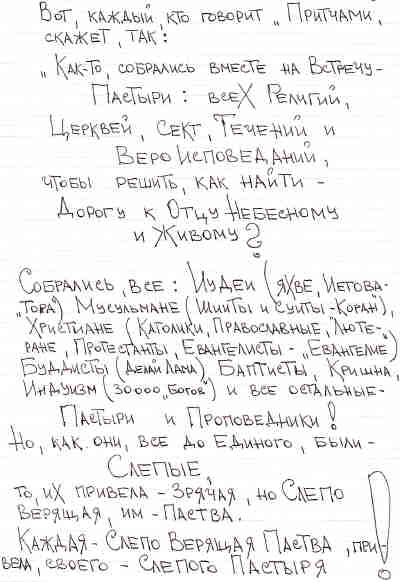 Вот, каждый, кто говорит „Притчами,
скажет, так:
„Как-то, собрались вместе на Встречу-
Пастыри: всех Религий,
Церквей, Сект, Течений и
ВероИсповеданий,
чтобы решить, как найти -
Дорогу к Отцу Небесному
и Живому?
Собрались, все: Иудеи (Яхве, Иегова-
„Тора") Мусульмане (Шииты и Суиты-Коран"),
Христиане (Католики, Православные, Люте-
ране, Протестанты, Евангелисты-„Евангелие)
Буддисты (Делай Лама) Баптисты, Кришна,
Индуизм (30000„Богов") и все остальные-
Пастыри и Проповедники!
Но, как они, все до Единого, были-
Слепые,
то, их привела - Зрячая, но Слепо
Верящая, им-Паства.
Каждая - Слепо Верящая Паства, при-
вела, своего - Слепого Пастыря!